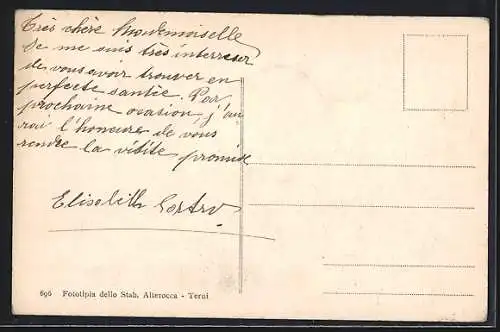 Très chère Mademoiselle
Je me suis très interresser
de vous avoir trouver en
perfecte santèe. Par
prochaine ocasion, j'au
rai l'honeure de vous
rendre la visite promise
Elisabeth
696 Fototipia dello Stab. Alterocca - Terni